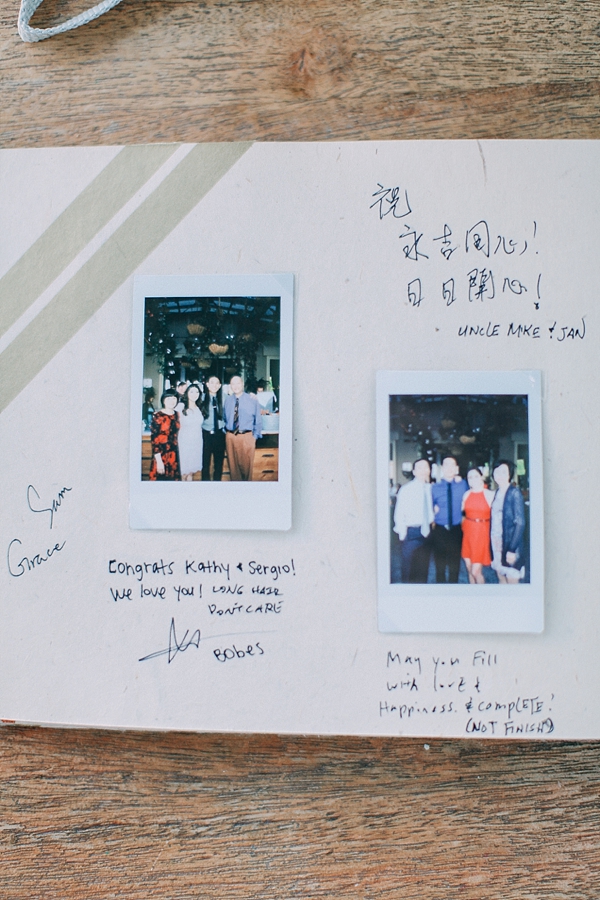 祝
永吉同心!
日日開心!
UNCLE MIKE & JAN
Sam
Grace
Congrats Kathy & Sergio!
We love you! LONG HAIR
DON'T CARE
Bobes
May you Fill
with love &
Happiness. & COMPLETE!
(NOT FINISH)